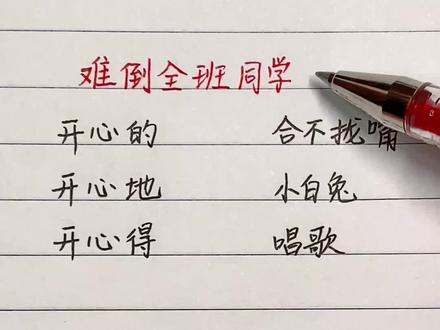 难倒全班同学
开心的 合不拢嘴
开心地 小白兔
开心得 唱歌